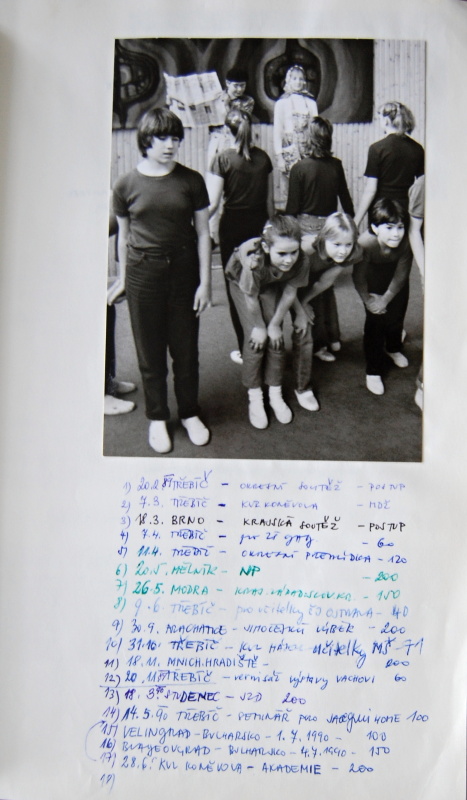 1) 20.2. TŘEBÍČ - OKRESNÍ SOUTĚŽ - POSTUP
2) 7.3. TŘEBÍČ - KVZ KONĚVOVA - MDŽ
3) 18.3. BRNO - KRAJSKÁ SOUTĚŽ - POSTUP
4) 7.4. TŘEBÍČ - pro ZŠ - 60
5) 11.4. TŘEBÍČ - OKRESNÍ PŘEHLÍDKA - 120
6) 20.5. MĚLNÍK - NP - 200
7) 26.5. MODRA - - 150
8) 9.6. TŘEBÍČ - pro učitelky OSTRAVA - 40
9) 30.9. - VÝBĚR - 200
10) 31.10. TŘEBÍČ - KVZ učitelky MŠ - 71
11) 18.11. MNICH. HRADIŠTĚ - 200
12) 20. TŘEBÍČ - vernisáž výstavy VACHOVI 60
13) 18. STUDENEC - SZD 200
14) 14.5.90 TŘEBÍČ - SEMINÁŘ pro 100
15) VELINGRAD - BULHARSKO - 1.7.1990 - 100
16) BLAGEOVGRAD - BULHARSKO - 4.7.1990 - 150
17) 28.6. KVZ KONĚVOVA - AKADEMIE - 200
18)